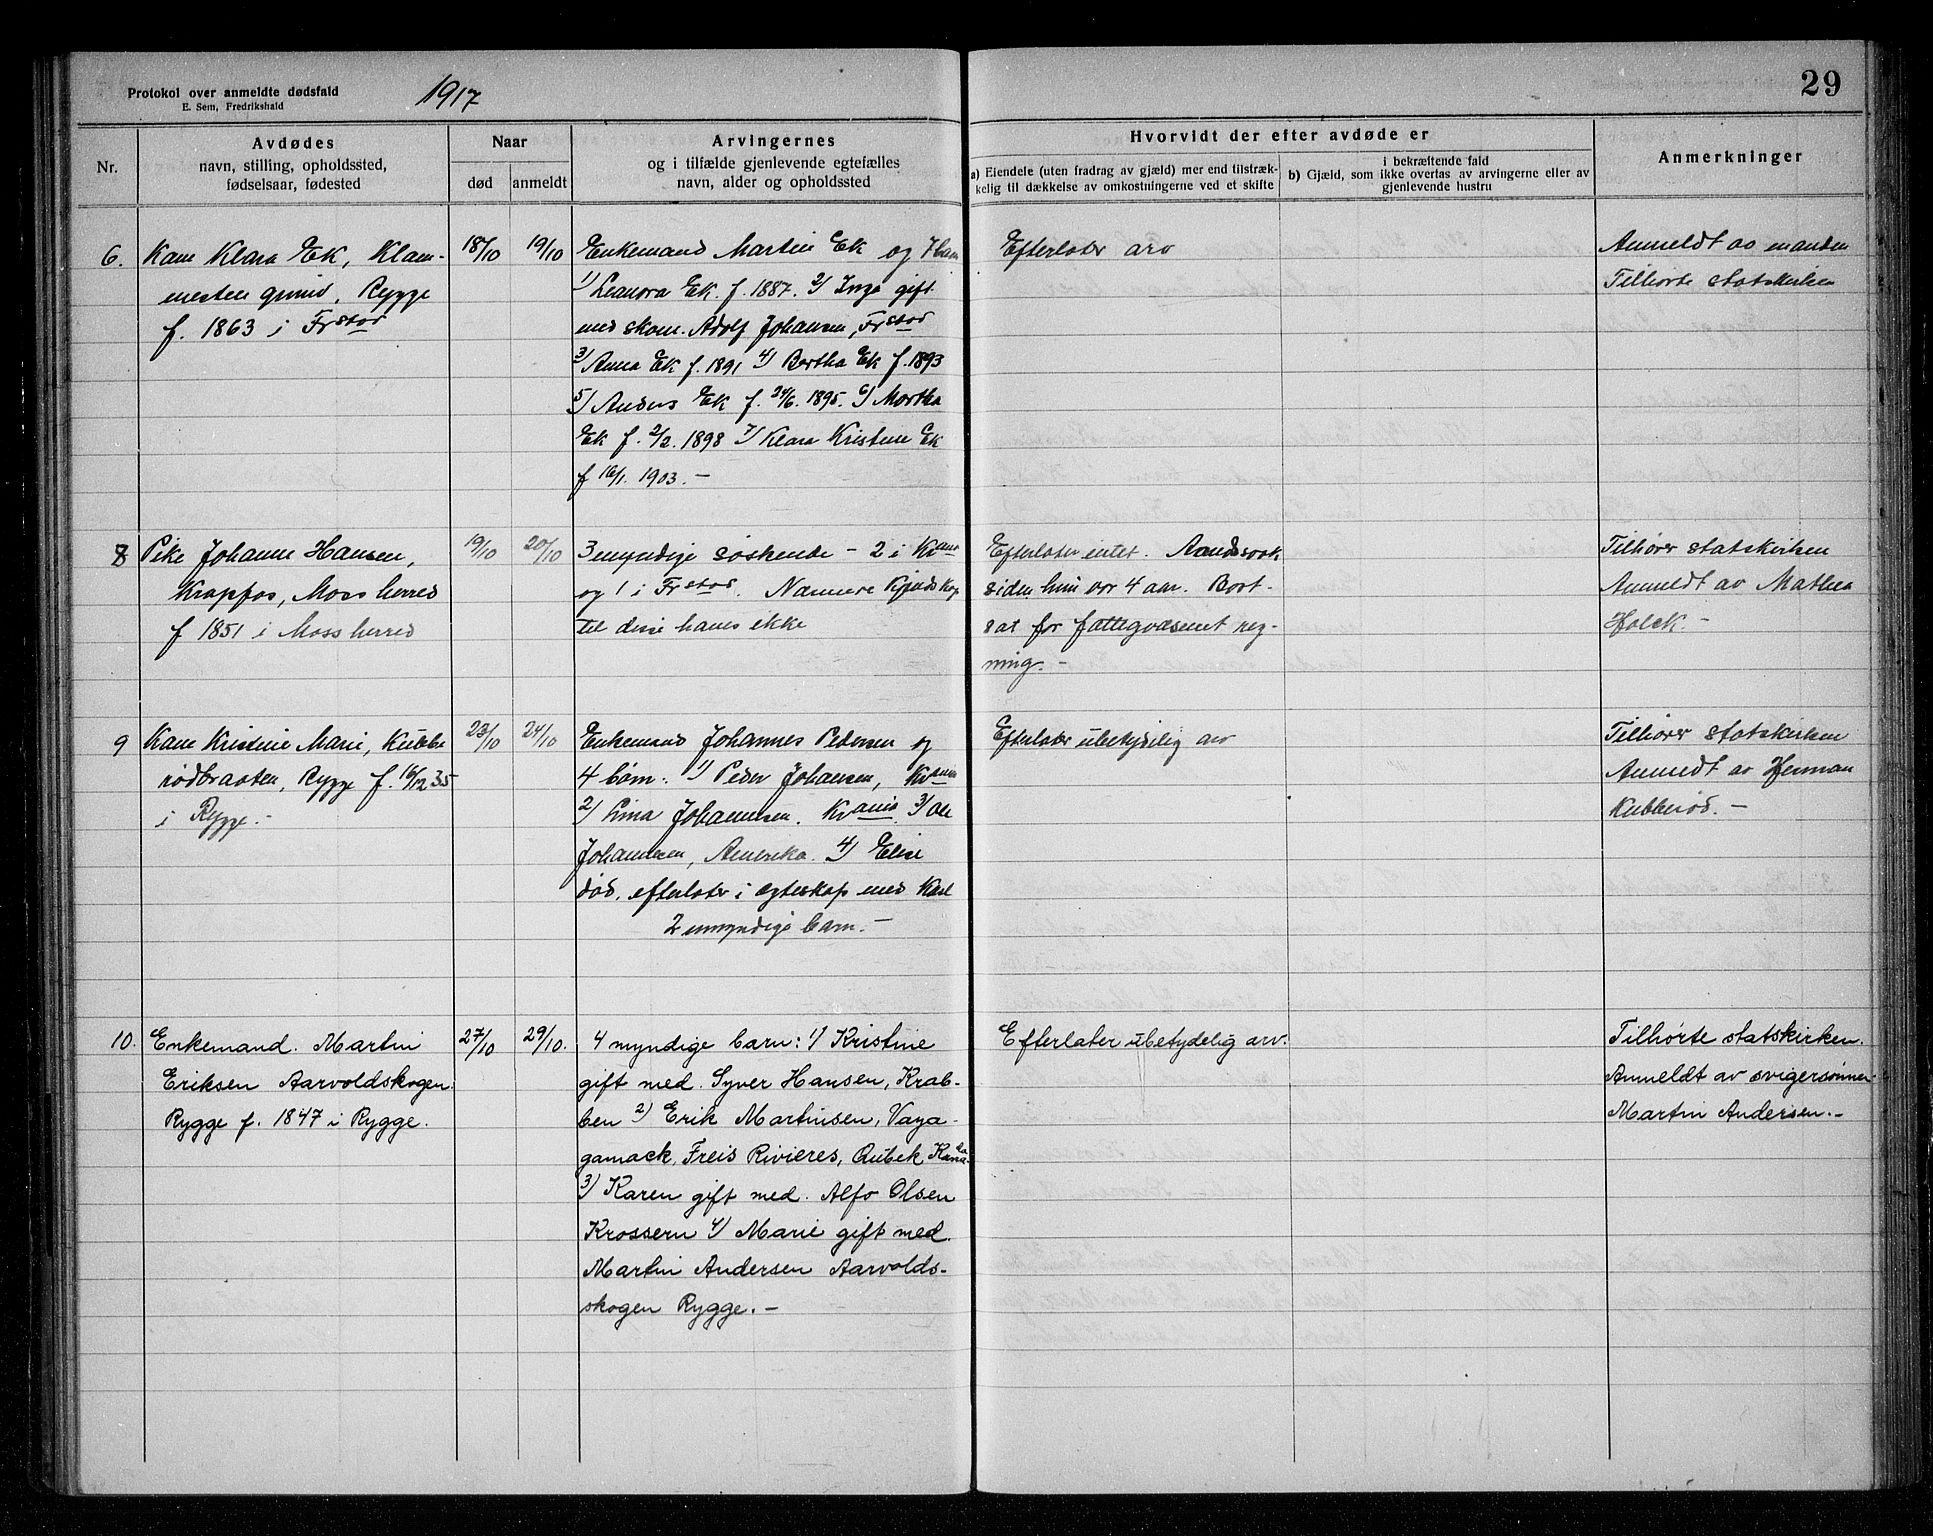 Protokol over anmeldte dødsfald
E. Sem, Fredrikshald
1917
29
Nr.
Avdødes
navn, stilling, opholdssted,
fødselsaar, fødested
Naar
død
anmeldt
Arvingernes
og i tilfælde gjenlevende egtefælles
navn, alder og opholdssted
Hvorvidt der efter avdøde er
a) Eiendele (uten fradrag av gjæld) mer end tilstræk-
kelig til dækkelse av omkostningerne ved et skifte
i bekræftende fald
b) Gjæld, som ikke overtas av arvingerne eller av
gjenlevende hustru
Anmerkninger
6.
Kone Klara Ek, Klom-
nesten grind, Rygge
f. 1863 i Frstad
18/10
19/10
Enkemand Martin Ek og 7 barn
1) Leanora Ek. f. 1887. 2) Inga gift
med skom. Adolf Johansen, Frstad
3) Anna Ek f. 1891 4) Bertha Ek f. 1893
5) Anders Ek f. 24/6. 1895. 6) Martha
Ek f. 2/2. 1898 7) Klara Kristine Ek
f 16/1. 1903. -
Efterlater arv
Anmeldt av manden
Tilhørte statskirken
8
Pike Johanne Hansen,
Krapfos, Moss herred
f 1851 i Moss herred
19/10
20/10
3 myndige søskende - 2 i Kr.ania
og 1 i Frstad. Nærmere kjendskap
til disse haves ikke
Efterlater intet. Aandssvak
siden hun var 4 aar. Bort-
sat for fattigvæsenet reg-
ning. -
Tilhører statskirken
Anmeldt av Mathea
Holck. -
9
Kone Kristine Marie, Kubbe
rødbraaten, Rygge f. 16/12 35
i Rygge. -
23/10
24/10
Enkemand Johannes Pedersen og
4 børn. 1) Peder Johansen, Kr.ania
2) Lina Johannesen. Kr.ania 3) Ole
Johannesen, Amerika. 4) Elise
død, efterlater i ægteskap med Karl
2 umyndige barn. -
Efterlater ubetydelig arv
Tilhører statskirken
Anmeldt av Herman
Kubberød. -
10.
Enkemand. Martin
Eriksen Aarvoldskogen.
Rygge f. 1847 i Rygge.
27/10
29/10.
4 myndige barn: 1) Kristine
gift med. Syver Hansen, Krab-
ben 2) Erik Martinsen, Vaya-
gamack, Freis Rivieres, Qubek Kanada.
3) Karen gift med. Alfo Olsen
Krossern 4) Marie gift med.
Martin Andersen Aarvolds-
skogen Rygge. -
Efterlater ubetydelig arv.
Tilhørte statskirken.
Anmeldt av svigersønnen
Martin Andersen. -